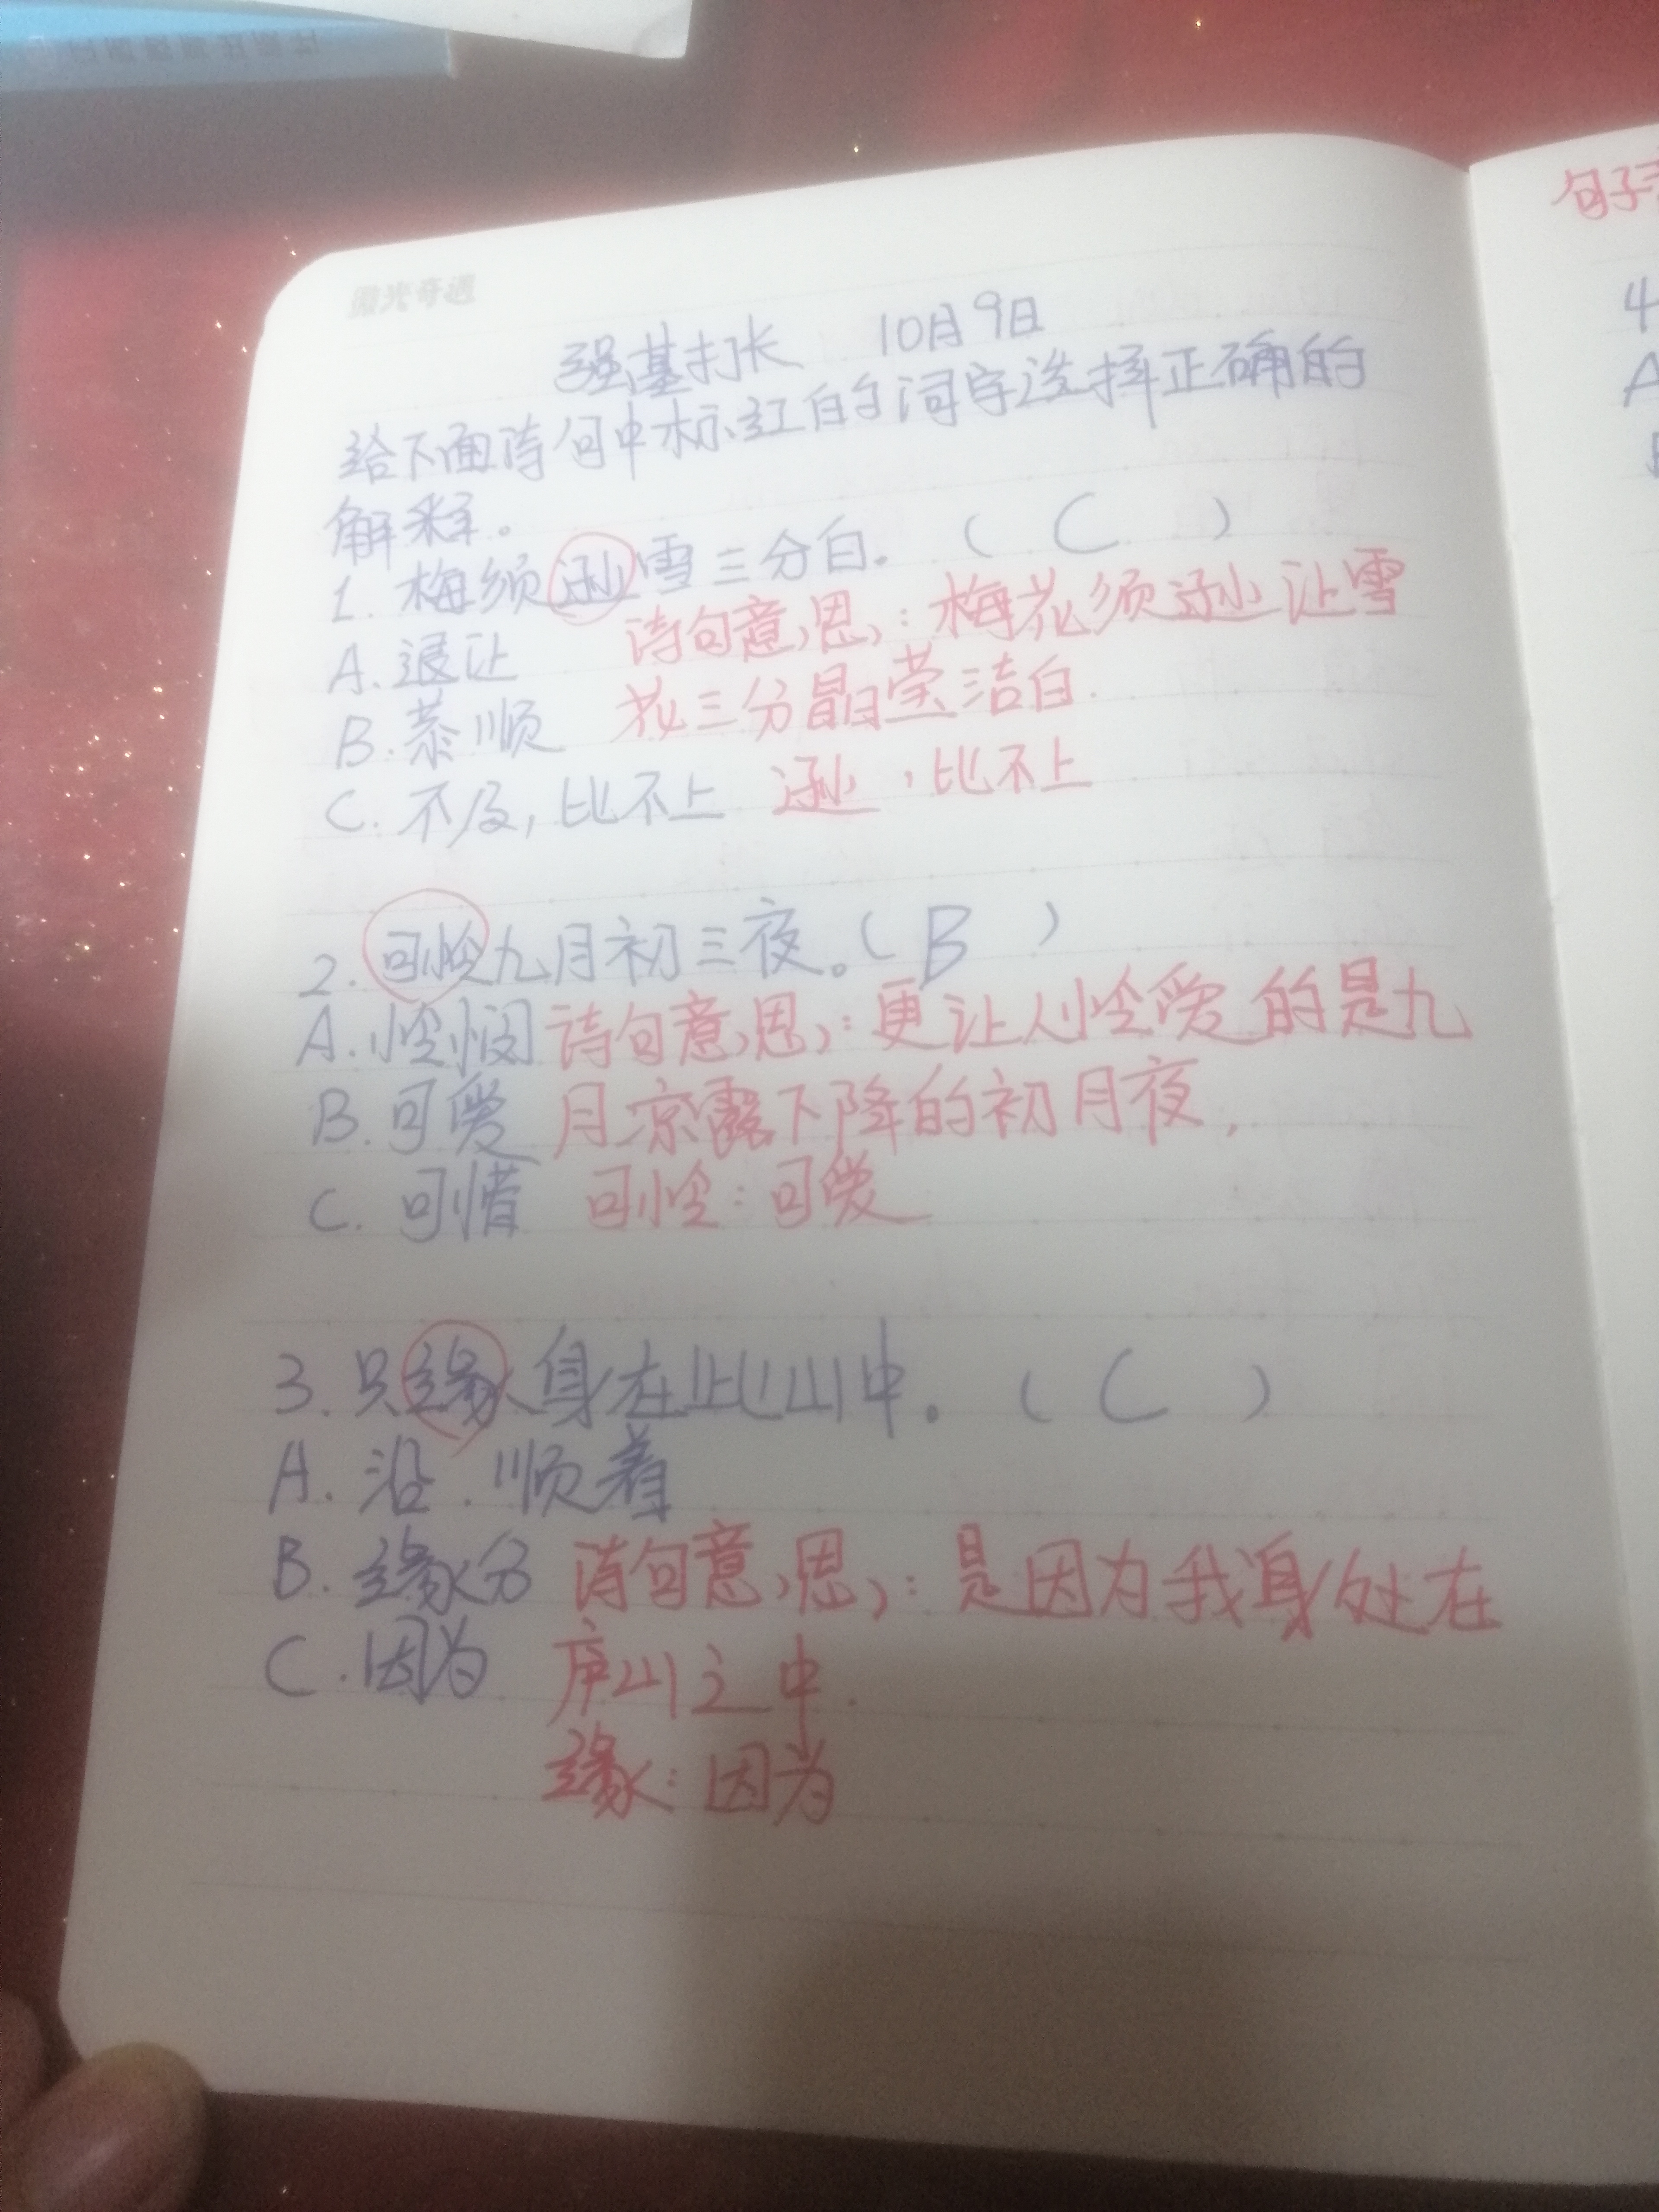 微光奇遇
强基打长 10月9日
给下面诗句中标红的词字选择正确的
解释。
1. 梅须逊雪三分白。( C )
A. 退让 诗句意思：梅花须逊让雪
B. 恭顺 花三分晶莹洁白.
C. 不及，比不上 逊，比不上
2. 可怜九月初三夜。( B )
A. 怜悯 诗句意思：更让人怜爱的是九
B. 可爱 月凉露下降的初月夜，
C. 可惜 可怜：可爱
3. 只缘身在此山中。( C )
A. 沿．顺着
B. 缘分 诗句意思：是因为我身处在
C. 因为 庐山之中.
缘：因为
句子
4
A